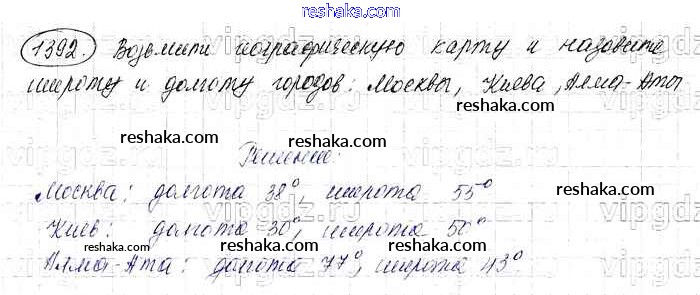 reshaka.com
1392. Возьмите географическую карту и назовите
широту и долготу городов: Москвы, Киева, Алма-Аты
reshaka.com
reshaka.com
Решение:
reshaka.com
Москва: долгота 38°, широта 55°
Киев: долгота 30°, широта 50°
reshaka.com
reshaka.com
Алма-Ата: долгота 77°, широта 43°.
reshaka.com